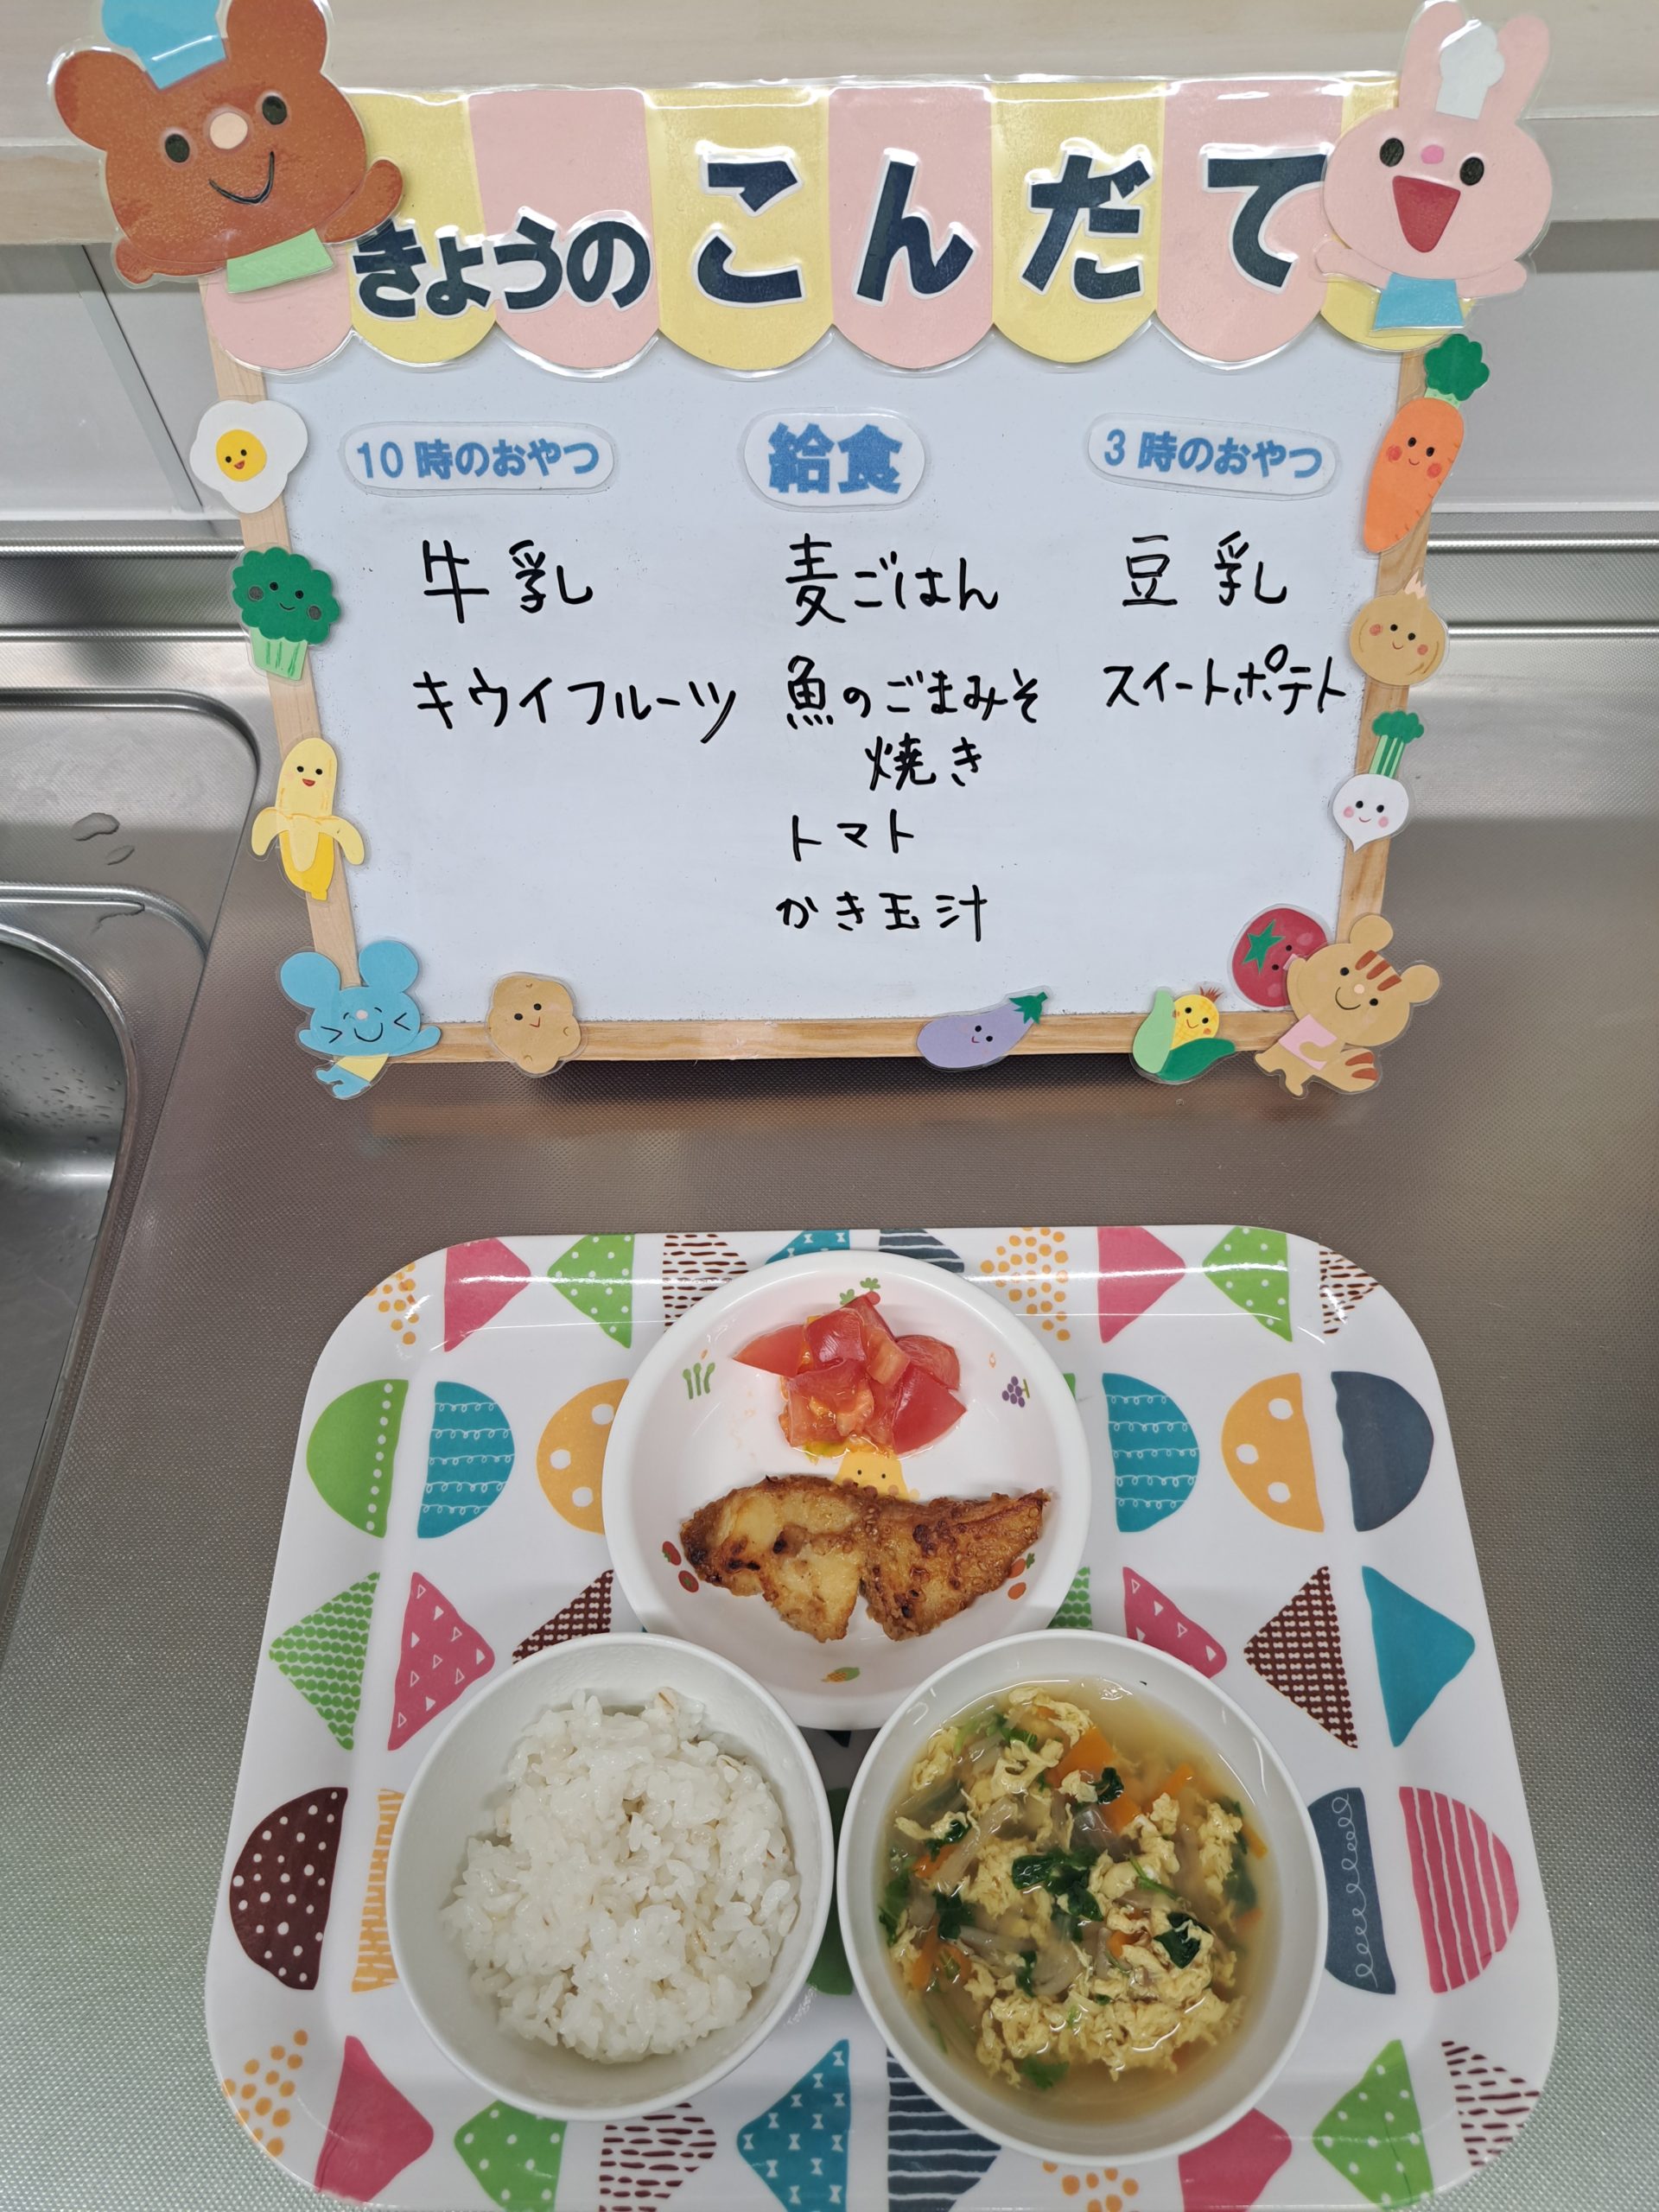 きょうのこんだて
10時のおやつ
牛乳
キウイフルーツ
給食
麦ごはん
魚のごまみそ
焼き
トマト
かき玉汁
3時のおやつ
豆乳
スイートポテト